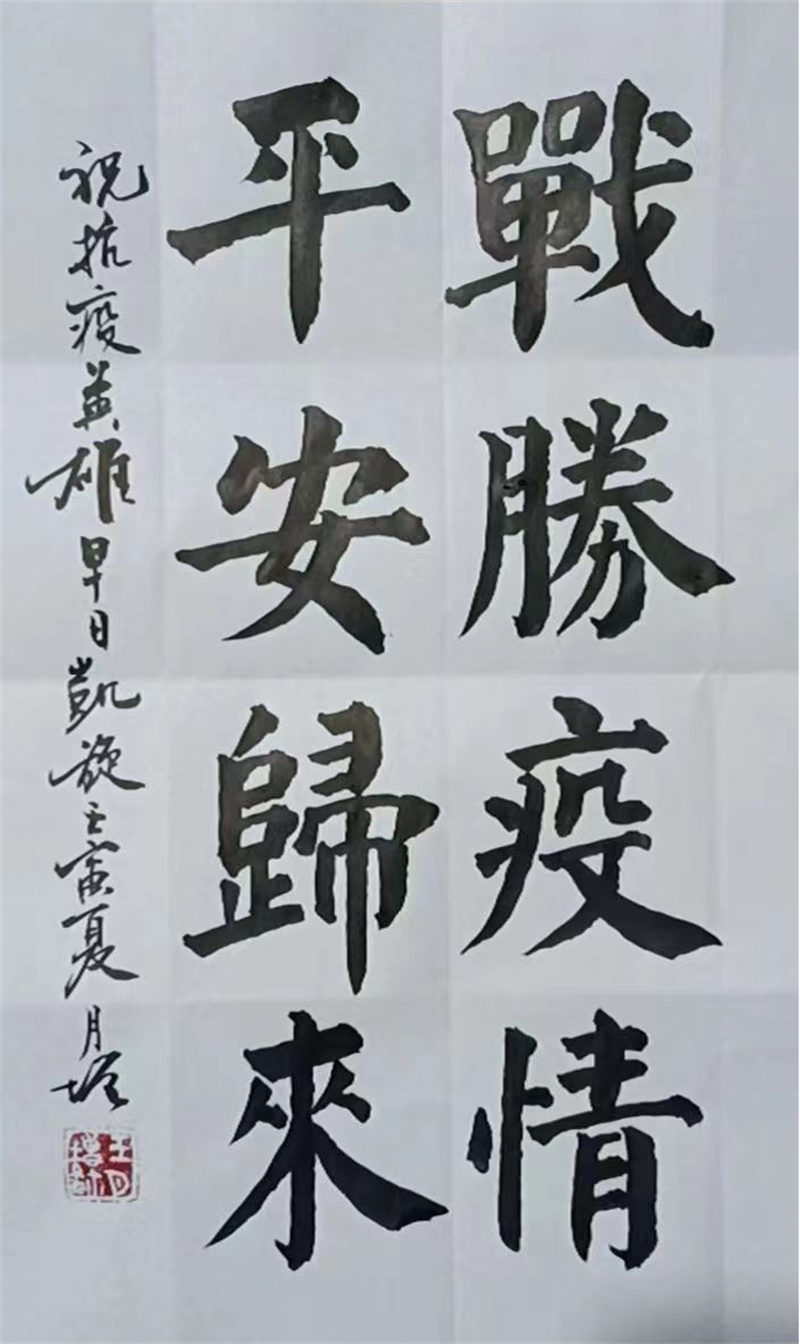 戰勝疫情
平安歸來
祝抗疫英雄早日凱旋壬寅夏月